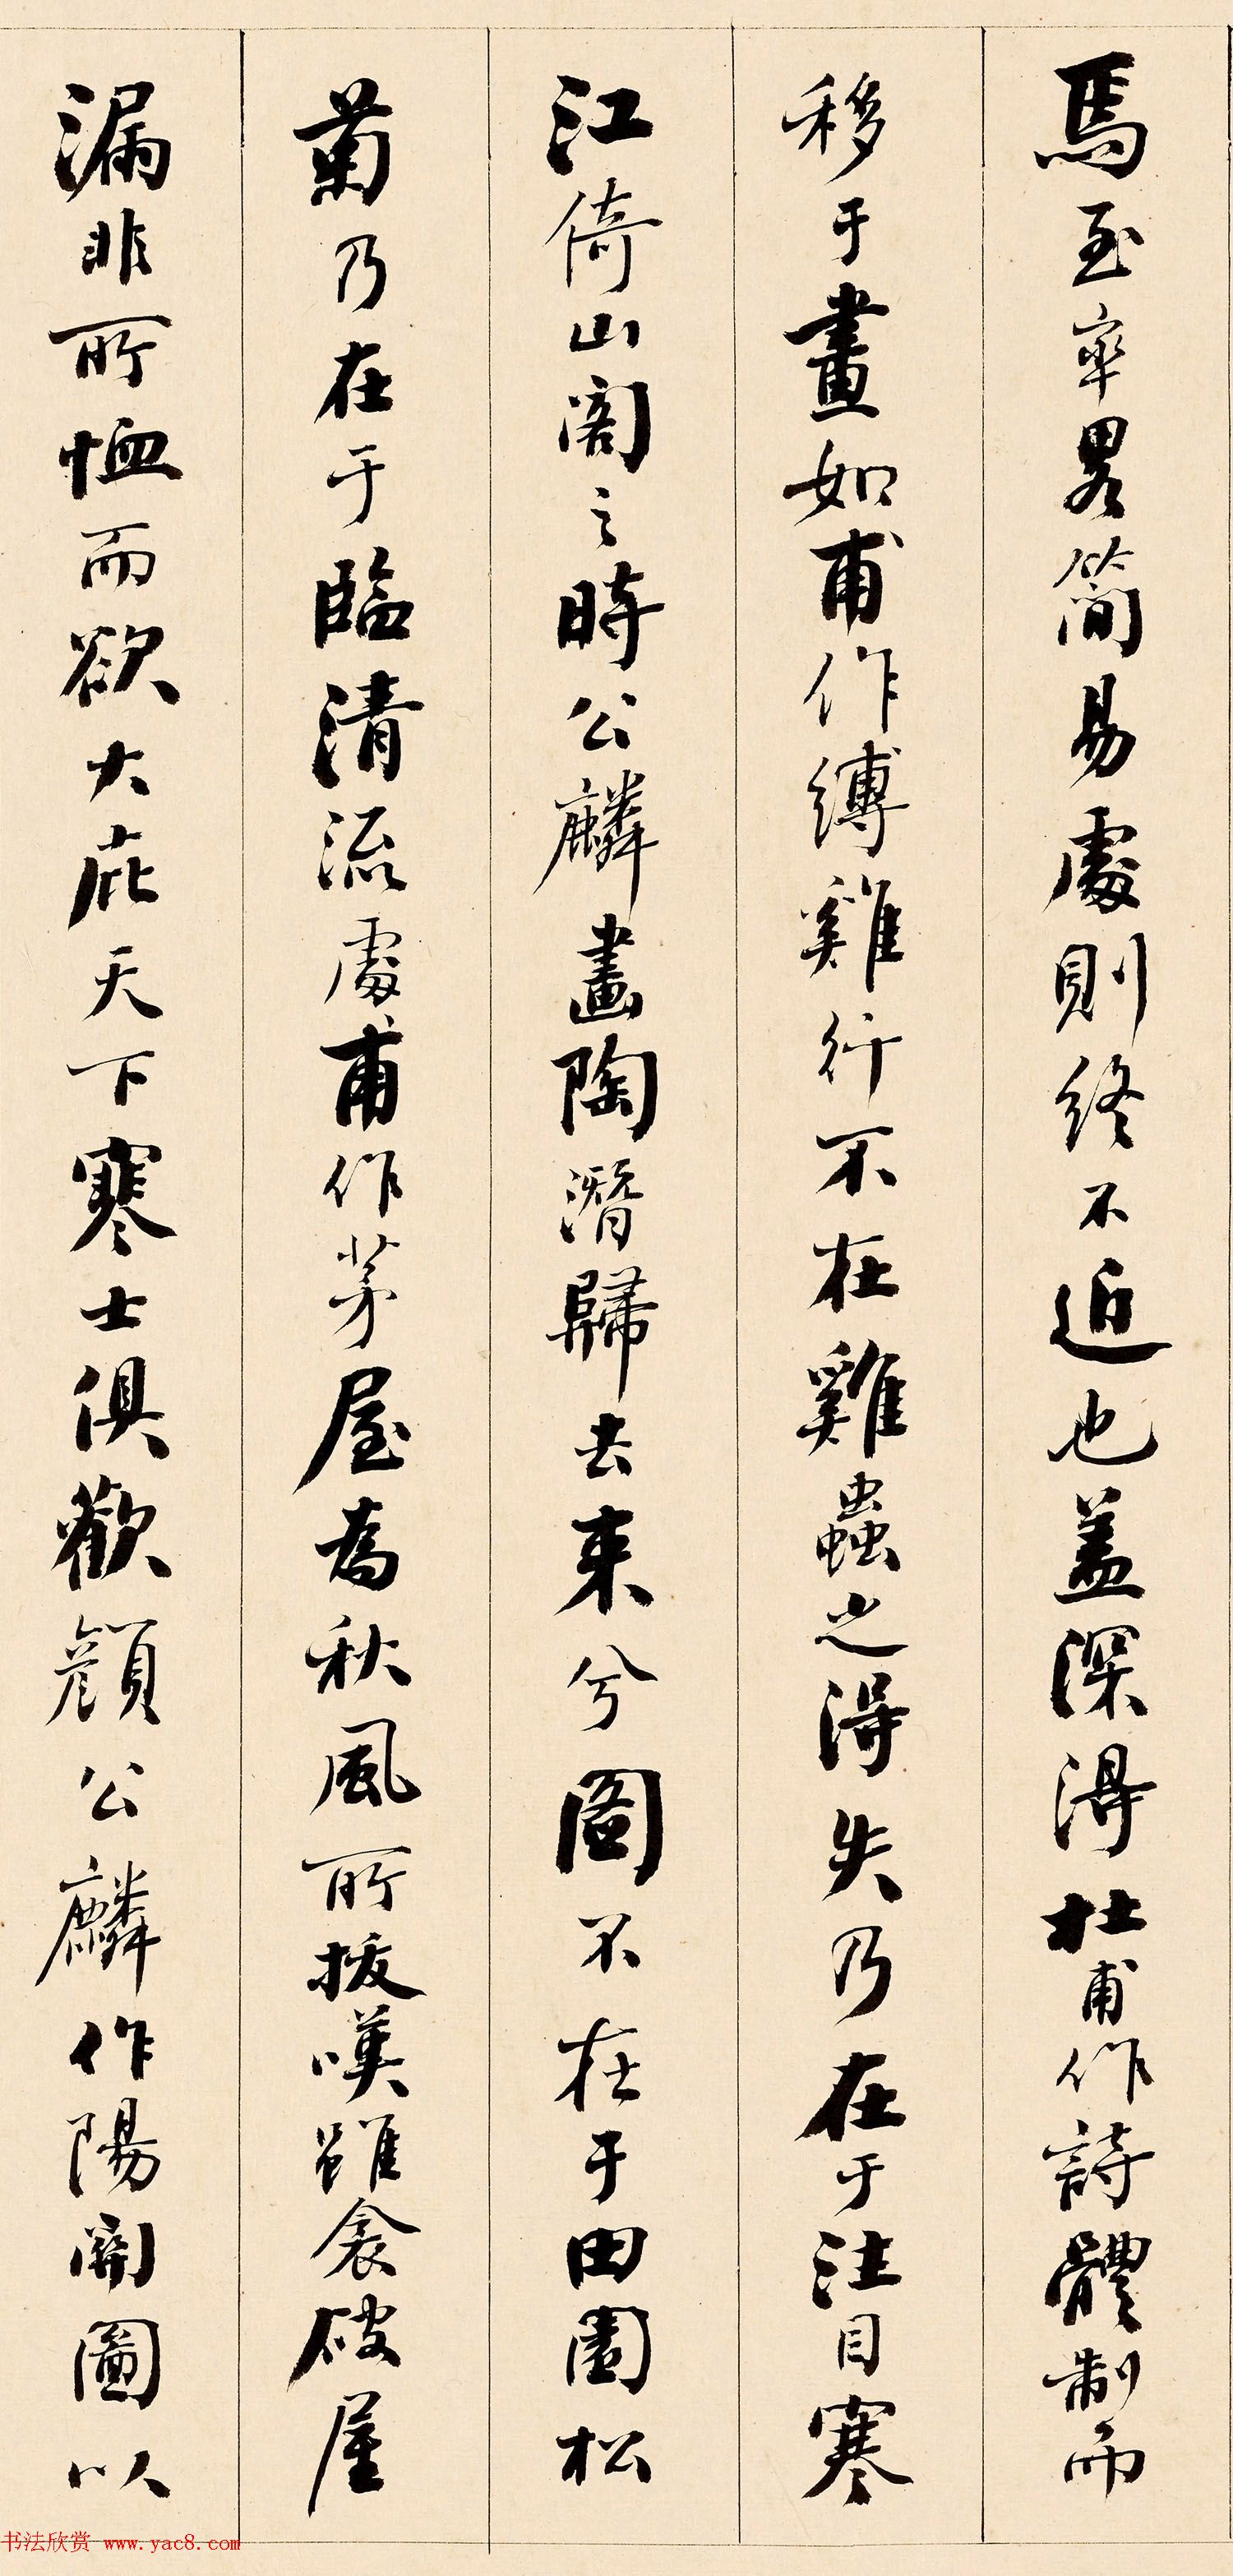 焉至率畧简易處則終不近也盖深得杜甫作詩體制而
移于畫如甫作縛雞行不在雞蟲之得失乃在于注目寒
江倚山閣之時公麟畫陶潛歸去来兮圖不在于田園松
菊乃在于臨清流處甫作茅屋為秋風所拔嘆雖衾破屋
漏非所恤而欲大庇天下寒士俱歡顔公麟作陽關圖以
书法欣赏 www.yac8.com